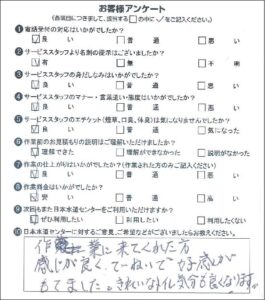 お客様アンケート
(各質問につきまして、該当する□の中に✓をご記入ください。)
❶電話受付の対応はいかがでしたか?
☑良い □普通 □悪い
❷サービススタッフより名刺の提示はございましたか?
☑有 □無 □不明
❸サービススタッフの身だしなみはいかがでしたか?
☑良い □普通 □悪い
❹サービススタッフのマナー・言葉遣い・態度はいかがでしたか?
☑良い □普通 □悪い
❺サービススタッフのエチケット(煙草、口臭、体臭)は気になりませんでしたか?
☑良い □普通 □気になった
❻作業前のお見積もりの説明はご理解いただけましたか?
☑理解できた □理解ができなかった □説明がなかった
❼作業の仕上がりはいかがでしたか?(作業された方のみご記入ください)
☑良い □普通 □悪い
❽作業料金はいかがでしたか?
☑安い □普通 □高い
❾次回もまた日本水道センターをご利用いただけますか?
☑ぜひ利用したい □利用したい □利用したくない
❿日本水道センターに対するご意見、ご希望などがございましたらお教えください。
作業に来てくれた方
感じが良く、てーねいで好感が
もてました。きれいな外化気分も良くなります。